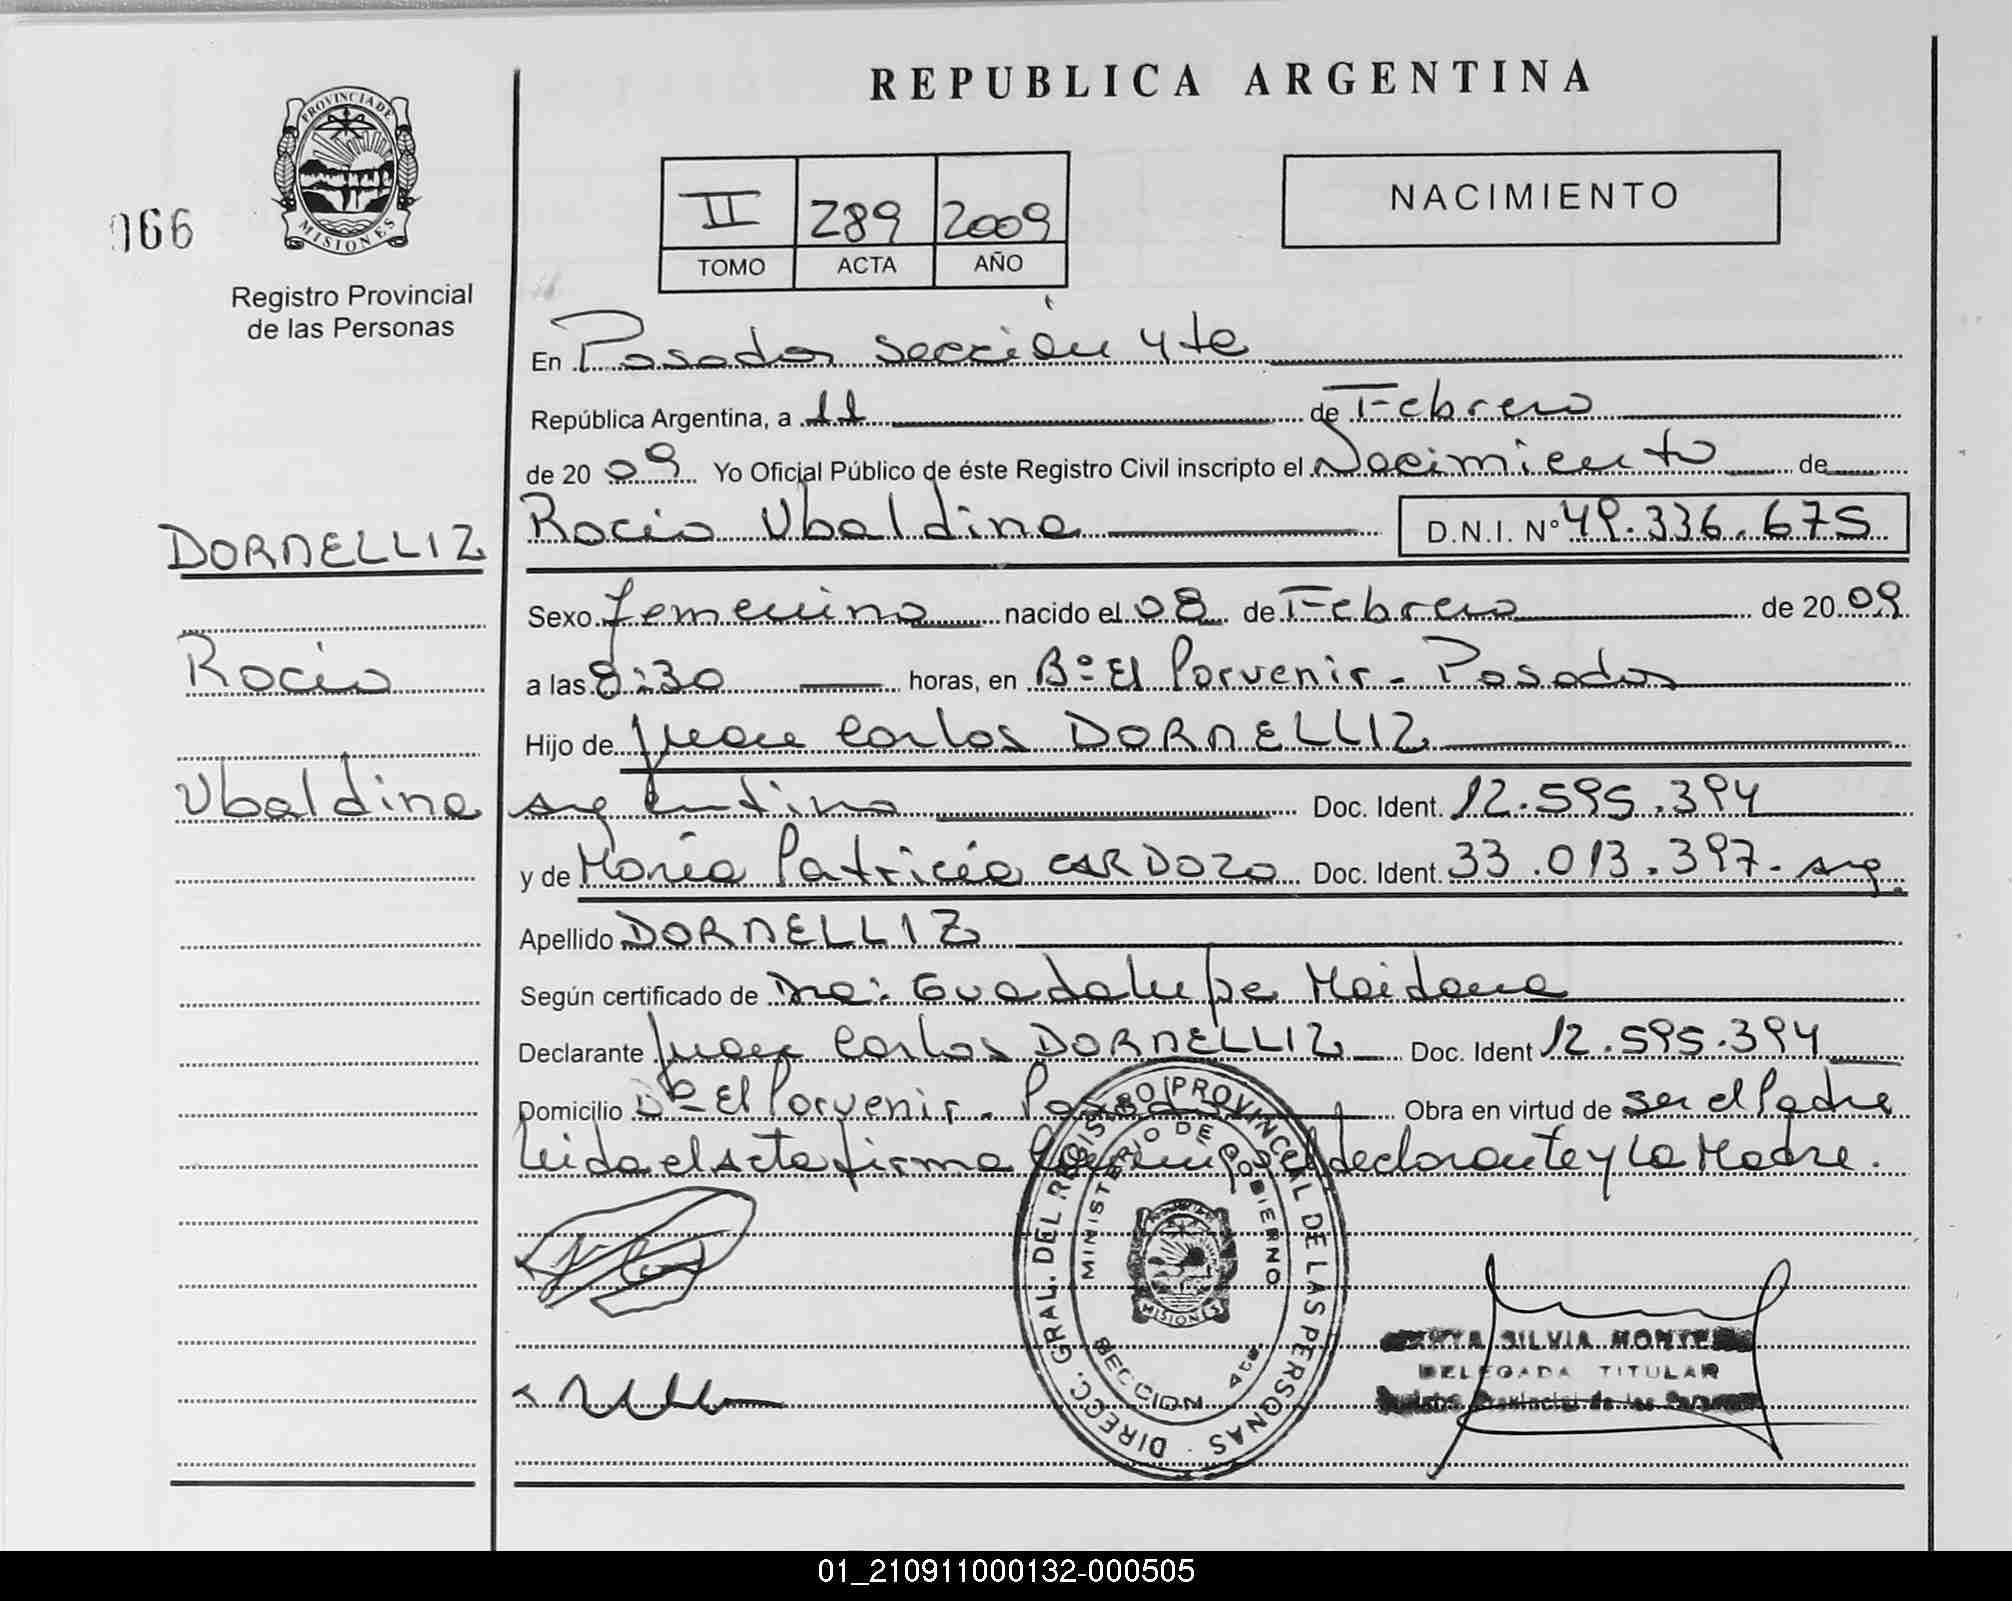 REPUBLICA ARGENTINA
PROVINCIA DE
MISIONES
066
Registro Provincial
de las Personas
II 289 2009
TOMO ACTA AÑO
NACIMIENTO
En Posadas sección 4ta
República Argentina, a 11 de Febrero
de 2009 Yo Oficial Público de éste Registro Civil inscripto el Nacimiento de
DORNELLIZ
Rocio Ubaldina D.N.I. Nº 49.336.675
Sexo femenino nacido el 08 de Febrero de 2009
Rocio
a las 8:30 horas, en Bº El Porvenir - Posadas
Hijo de Juan Carlos DORNELLIZ
Ubaldina
argentino Doc. Ident. 12.595.394
y de María Patricia CARDOZO Doc. Ident. 33.013.397 - arg.
Apellido DORNELLIZ
Según certificado de Dra: Guadalupe Maidana
Declarante Juan Carlos DORNELLIZ Doc. Ident 12.595.394
Domicilio Bº El Porvenir - Posadas Obra en virtud de ser el Padre
leida el acta firma el declarante y la Madre.
DIRECC. GRAL. DEL REGISTRO PROVINCIAL DE LAS PERSONAS
MINISTERIO DE GOBIERNO
MISIONES
SECCION 4ta
SILVIA
DELEGADA TITULAR
Provincial de las
01_210911000132-000505